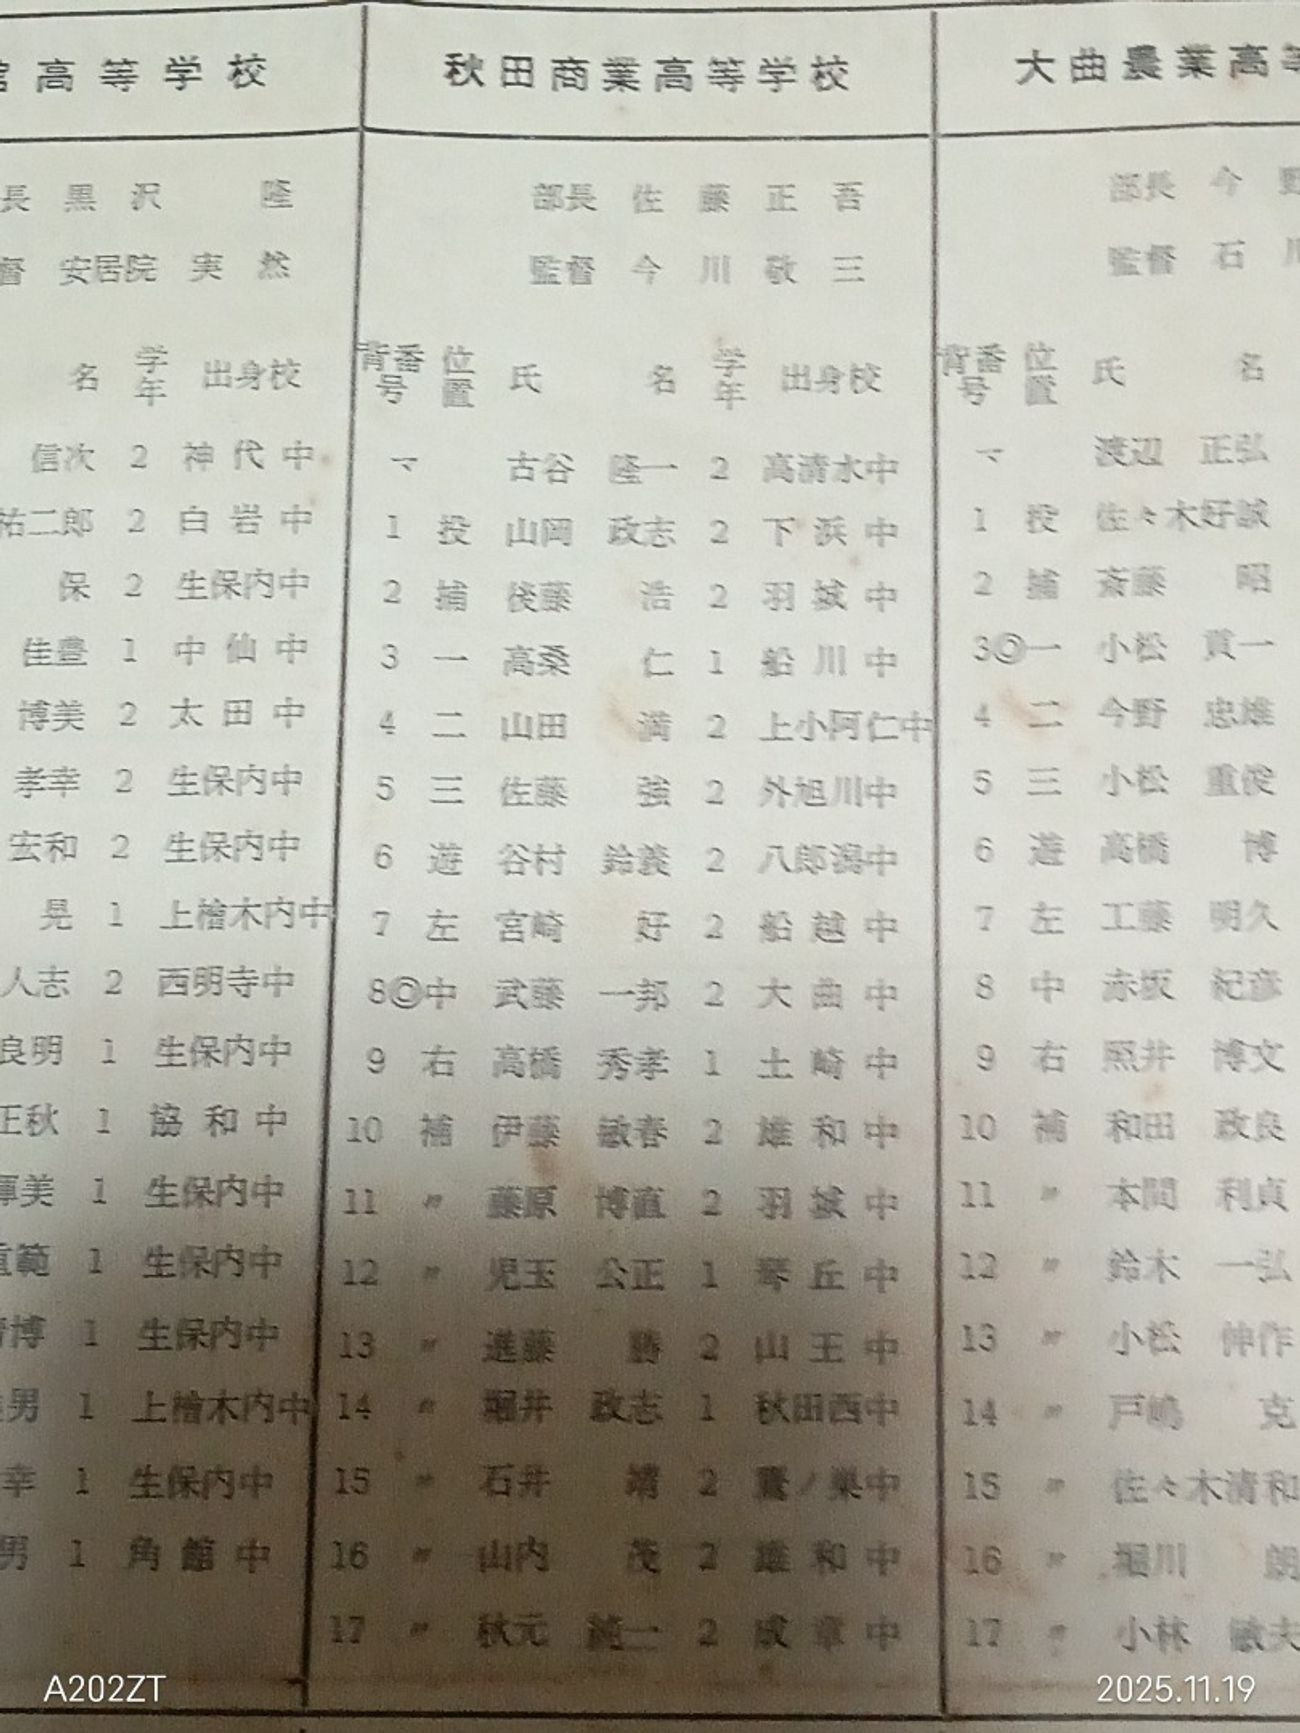 高等学校
長 黒沢 隆
督 安居院 実然
名 学年 出身校
信次 2 神代中
祐二郎 2 白岩中
保 2 生保内中
佳豊 1 中仙中
博美 2 太田中
孝幸 2 生保内中
宏和 2 生保内中
晃 1 上檜木内中
人志 2 西明寺中
良明 1 生保内中
正秋 1 協和中
美 1 生保内中
範 1 生保内中
博 1 生保内中
男 1 上檜木内中
幸 1 生保内中
男 1 角館中
秋田商業高等学校
部長 佐藤正吾
監督 今川敬三
背番号 位置 氏名 学年 出身校
マ 古谷 隆一 2 高清水中
1 投 山岡 政志 2 下浜中
2 捕 後藤 浩 2 羽城中
3 一 高桑 仁 1 船川中
4 二 山田 満 2 上小阿仁中
5 三 佐藤 強 2 外旭川中
6 遊 谷村 鈴義 2 八郎潟中
7 左 宮崎 好 2 船越中
8◎中 武藤 一邦 2 大曲中
9 右 高橋 秀孝 1 土崎中
10 補 伊藤 敏春 2 雄和中
11 〃 藤原 博直 2 羽城中
12 〃 児玉 公正 1 琴丘中
13 〃 進藤 勝 2 山王中
14 〃 堀井 政志 1 秋田西中
15 〃 石井 靖 2 鷹ノ巣中
16 〃 山内 茂 2 雄和中
17 〃 秋元 純一 2 成章中
大曲農業高等
部長 今野
監督 石川
背番号 位置 氏名
マ 渡辺 正弘
1 投 佐々木好誠
2 捕 斎藤 昭
3◎一 小松 貢一
4 二 今野 忠雄
5 三 小松 重俊
6 遊 高橋 博
7 左 工藤 明久
8 中 赤坂 紀彦
9 右 照井 博文
10 補 和田 政良
11 〃 本間 利貞
12 〃 鈴木 一弘
13 〃 小松 伸作
14 〃 戸嶋 克
15 〃 佐々木清和
16 〃 堀川 朗
17 〃 小林 敏夫
A202ZT
2025.11.19